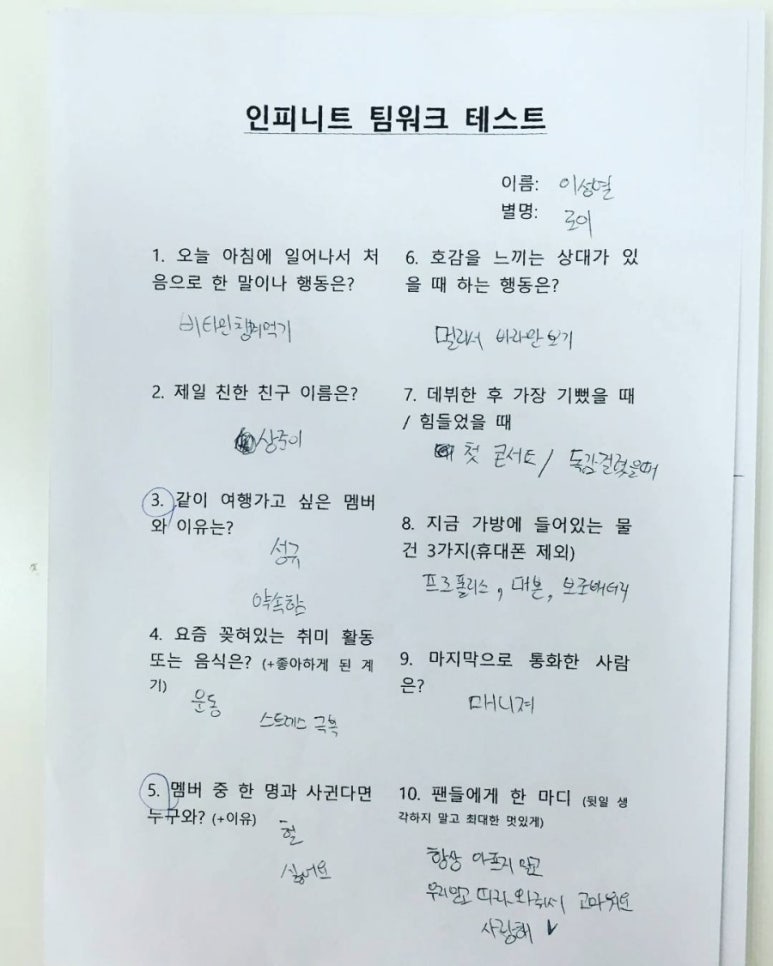 인피니트 팀워크 테스트
이름: 이성열
별명: 로이
1. 오늘 아침에 일어나서 처
음으로 한 말이나 행동은?
비타민 챙겨먹기
2. 제일 친한 친구 이름은?
상준이
3. 같이 여행가고 싶은 멤버
와 이유는?
성규
약속함
4. 요즘 꽂혀있는 취미 활동
또는 음식은? (+좋아하게 된 계
기)
운동
스트레스 극복
5. 멤버 중 한 명과 사귄다면
누구와? (+이유)
헐
싫어요
6. 호감을 느끼는 상대가 있
을 때 하는 행동은?
멀리서 바라만 보기
7. 데뷔한 후 가장 기뻤을 때
/ 힘들었을 때
첫 콘서트 / 독감걸렸을때
8. 지금 가방에 들어있는 물
건 3가지(휴대폰 제외)
프로폴리스, 대본, 보조배터리
9. 마지막으로 통화한 사람
은?
매니져
10. 팬들에게 한 마디 (뒷일 생
각하지 말고 최대한 멋있게)
항상 아프지 말고
우리믿고 따라와줘서 고마워요
사랑해